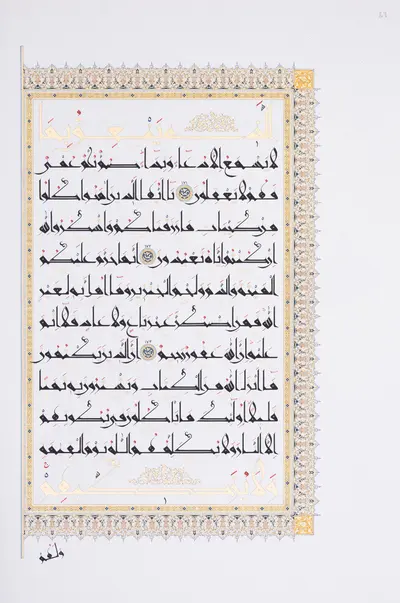 الذى ينعق بما
لا يسمع الا دعاء ونداء صم بكم عمى
فهم لا يعقلون يا ايها الذين امنوا كلوا
من طيبات ما رزقناكم واشكروا لله
ان كنتم اياه تعبدون انما حرم عليكم
الميتة والدم ولحم الخنزير وما اهل به لغير
الله فمن اضطر غير باغ ولا عاد فلا اثم
عليه ان الله غفور رحيم ان الذين يكتمون
ما انزل الله من الكتاب ويشترون به ثمنا
قليلا اولئك ما ياكلون فى بطونهم
الا النار ولا يكلمهم الله يوم القيمة
ولا يزكيهم
ولهم